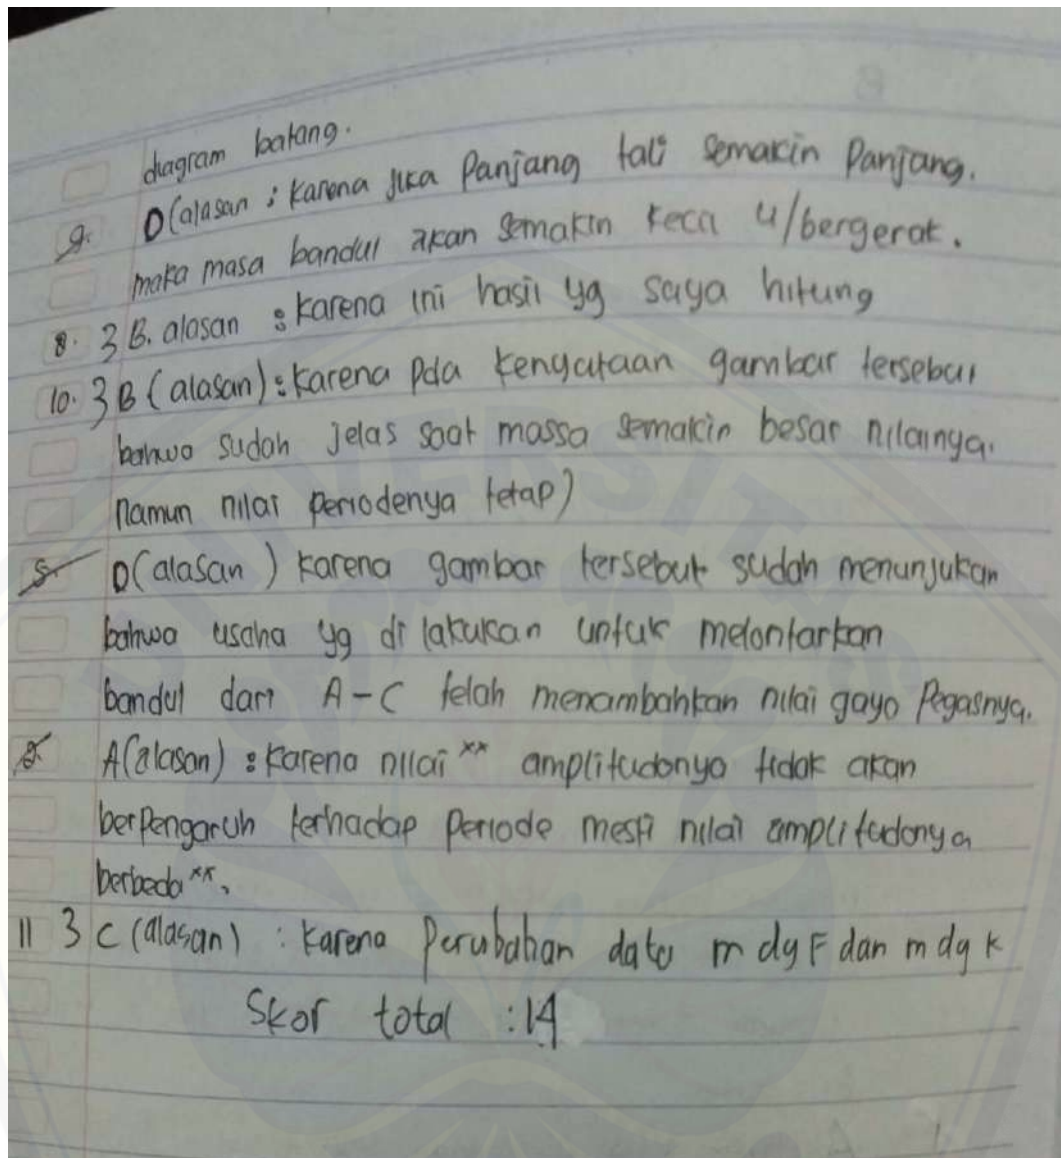 diagram batang.
9. D(alasan : karena jika Panjang tali semakin Panjang.
maka masa bandul akan semakin kecil u/bergerak.
8. 3 B. alasan : karena ini hasil yg saya hitung
10. 3 B (alasan) : karena pda kenyataan gambar tersebut
bahwa sudah jelas saat massa semakin besar nilainya.
namun nilai periodenya tetap)
5. D(alasan) karena gambar tersebut sudah menunjukan
bahwa usaha yg di lakukan untuk melontarkan
bandul dari A-C telah menambahkan nilai gaya Pegasnya.
A(alasan) : karena nilai ** amplitudonya tidak akan
berpengaruh terhadap periode meski nilai amplitudonya
berbeda **.
11 3 C (alasan) : karena Perubahan data m dg F dan m dg k
Skor total : 14
UNIVERSITAS